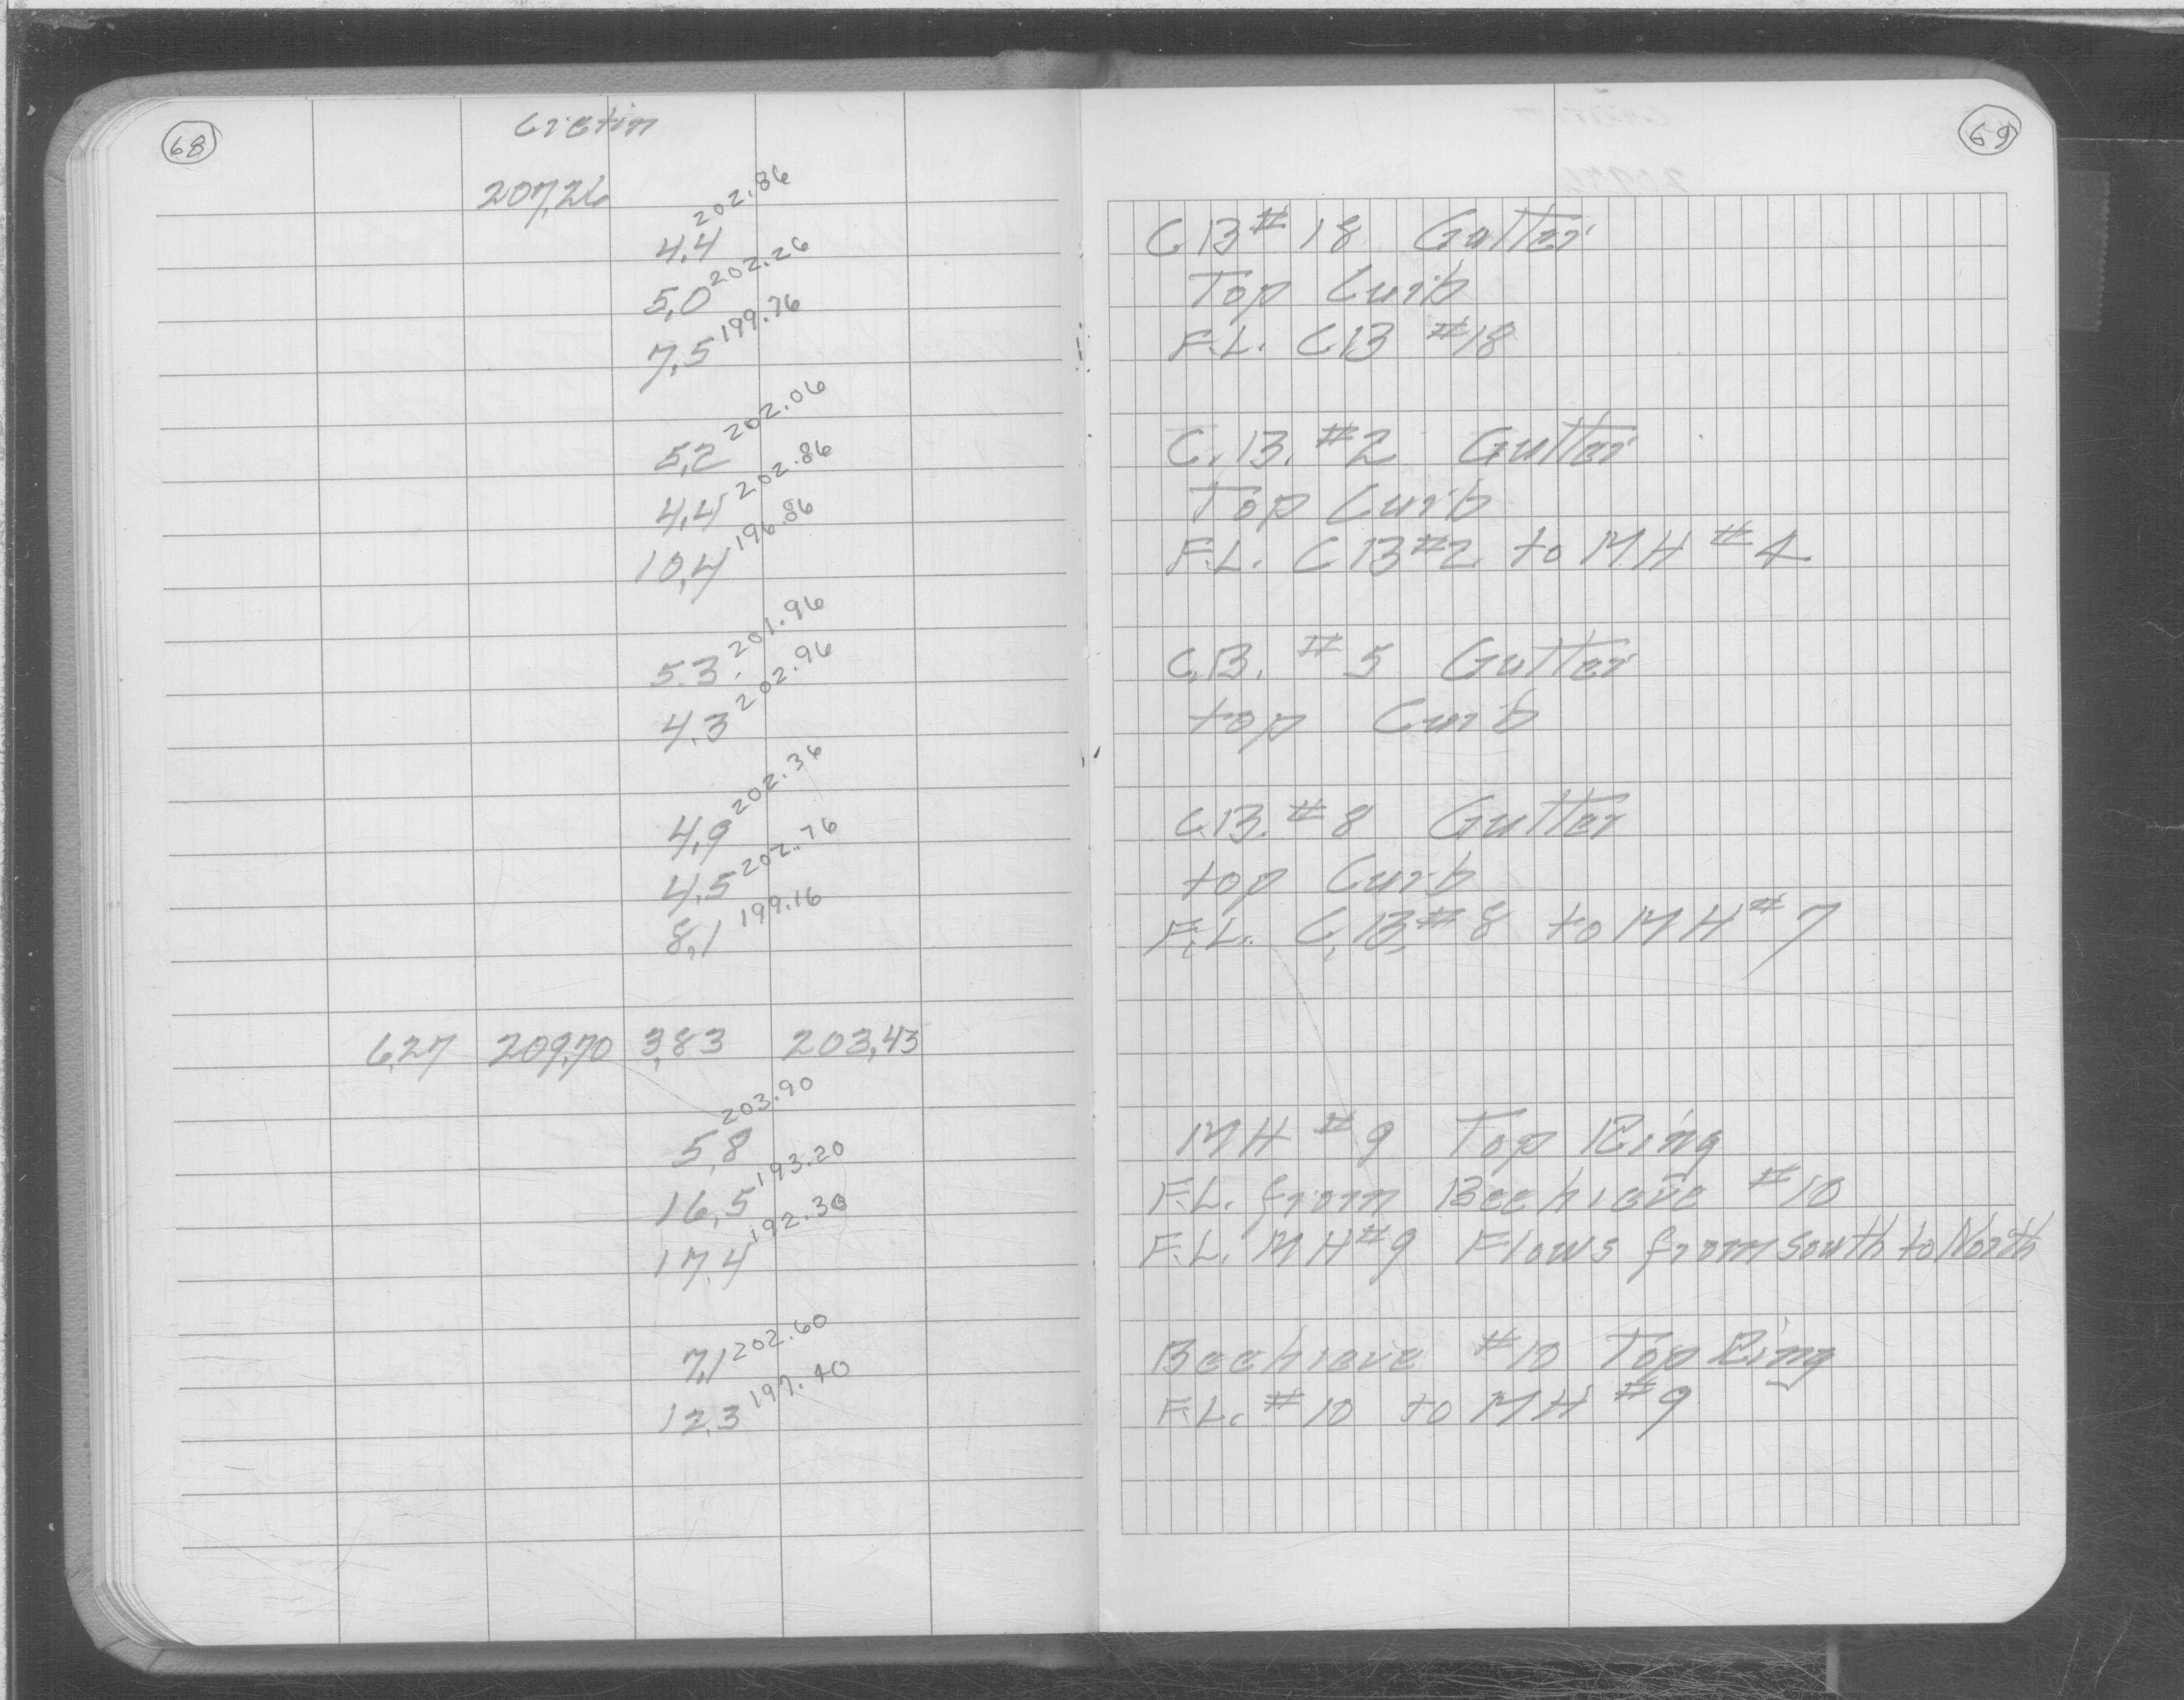 68
Cretin
207,26
4,4 202.86
5,0 202.26
7,5 199.76
5,2 202.06
4,4 202.86
10,4 196.86
5.3 201.96
4,3 202.96
4,9 202.36
4,5 202.76
8,1 199.16
6,27 209,70 3,83 203,43
5,8 203.90
16,5 193.20
17,4 192.30
7,1 202.60
12,3 197.40
69
C,B # 18 Gutter
Top Curb
F.L. C,B #18
C.B. #2 Gutter
Top Curb
F.L. C B #2 to M H #4
C,B. #5 Gutter
top Curb
C.B. #8 Gutter
top Curb
F.L. C,B,#8 to M H #7
M H #9 Top Ring
F.L. from Beehieve #10
F.L. M H #9 Flows from South to North
Beehieve #10 Top Ring
F.L. #10 to M H #9